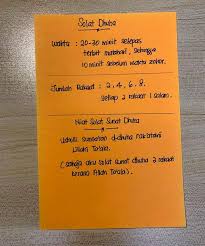 Solat Dhuha
Waktu : 20-30 minit selepas
terbit matahari, sehingga
10 minit sebelum waktu zohor.
Jumlah Rakaat : 2, 4, 6, 8.
Setiap 2 rakaat 1 salam.
Niat Solat Sunat Dhuha
Usholli sunnatan d-dhuha rak'atani
Lillahi Ta'ala.
(Sahaja aku solat sunat dhuha 2 rakaat
kerana Allah Ta'ala).